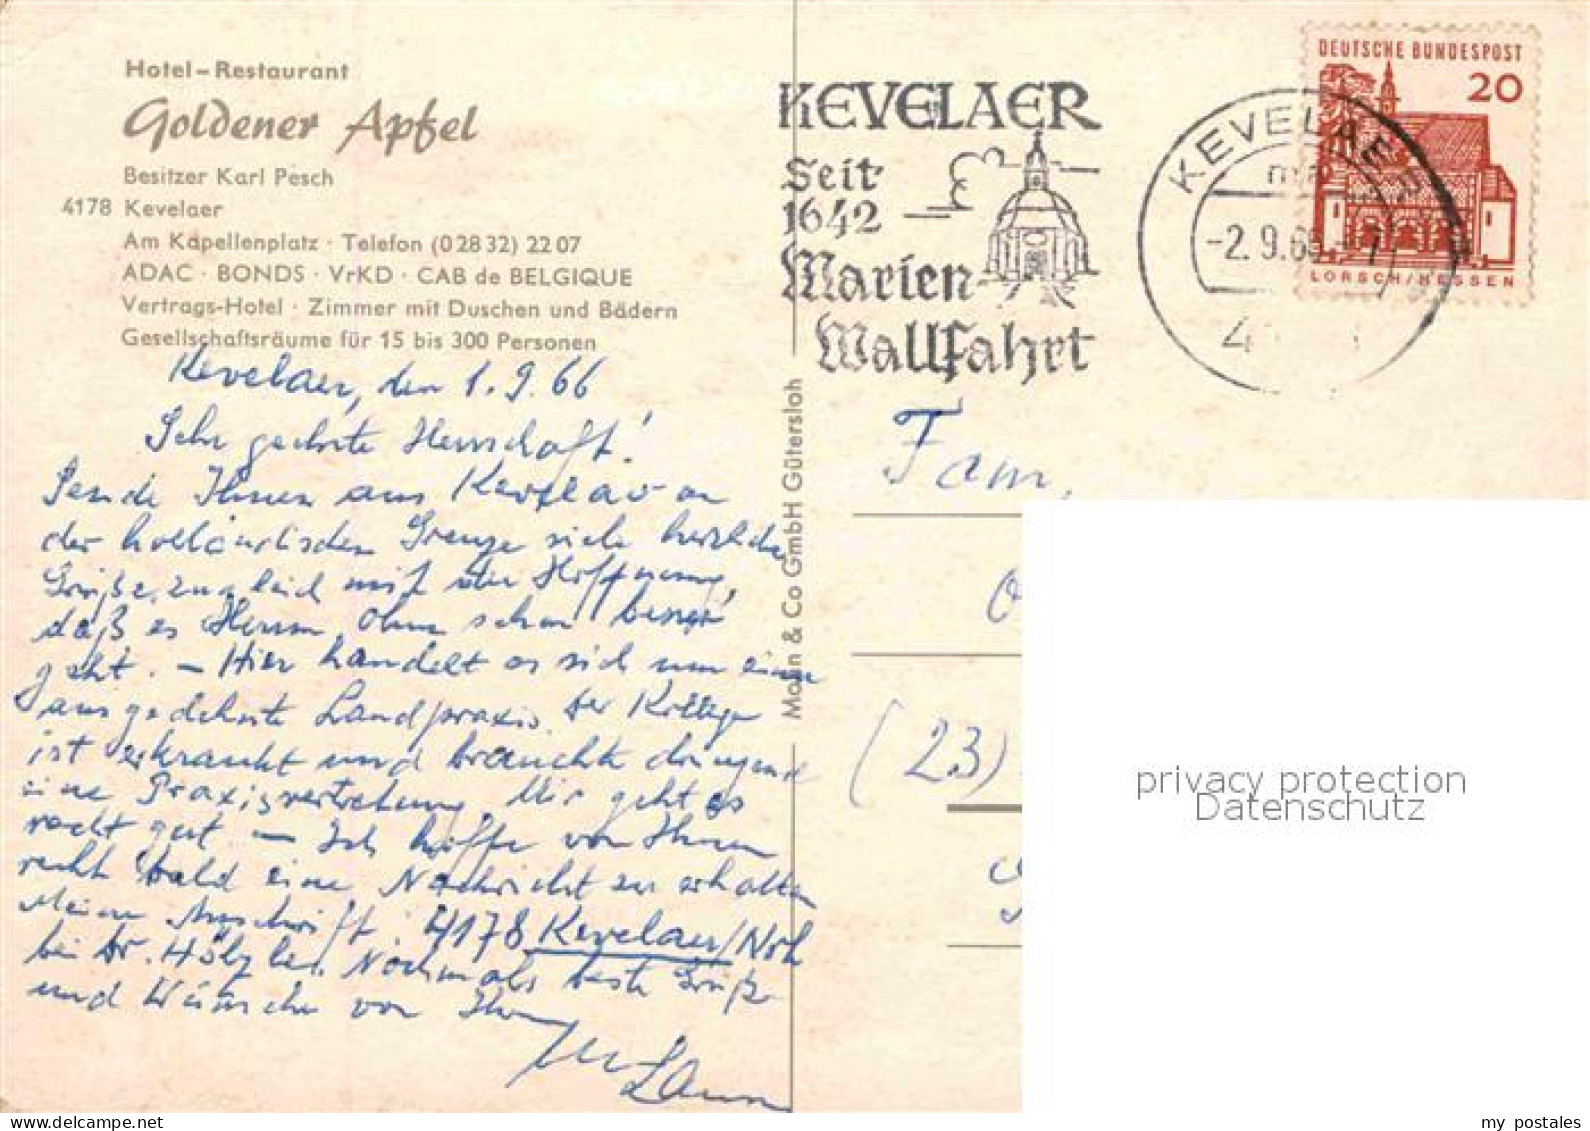 Hotel-Restaurant
Goldener Apfel
Besitzer Karl Pesch
4178 Kevelaer
Am Kapellenplatz · Telefon (0 28 32) 22 07
ADAC · BONDS · VrKD · CAB de BELGIQUE
Vertrags-Hotel · Zimmer mit Duschen und Bädern
Gesellschaftsräume für 15 bis 300 Personen
Kevelaer, den 1.9.66
Sehr geehrte Herrschaft!
Sende Ihnen aus Kevelaer an
der holländischen Grenze viele herzliche
Grüße, zugleich mit der Hoffnung,
daß es Herrn schon besser
geht. – Hier handelt es sich um eine
ausgedehnte Landpraxis. Der Kollege
ist erkrankt und brauchte dringend
eine Praxisvertretung. Mir geht es
recht gut – Ich hoffe von Ihnen
recht bald eine Nachricht zu erhalten
Meine Anschrift: 4178 Kevelaer/Ndrh
bei Dr. Hölz Nochmals beste Grüße
und Wünsche von Ihrem
Mohn & Co GmbH Gütersloh
KEVELAER
Seit
1642
Marien-
Wallfahrt
KEVELAER
-2.9.66
DEUTSCHE BUNDESPOST
20
LORSCH/HESSEN
Fam.
(23)
privacy protection
Datenschutz
my postales